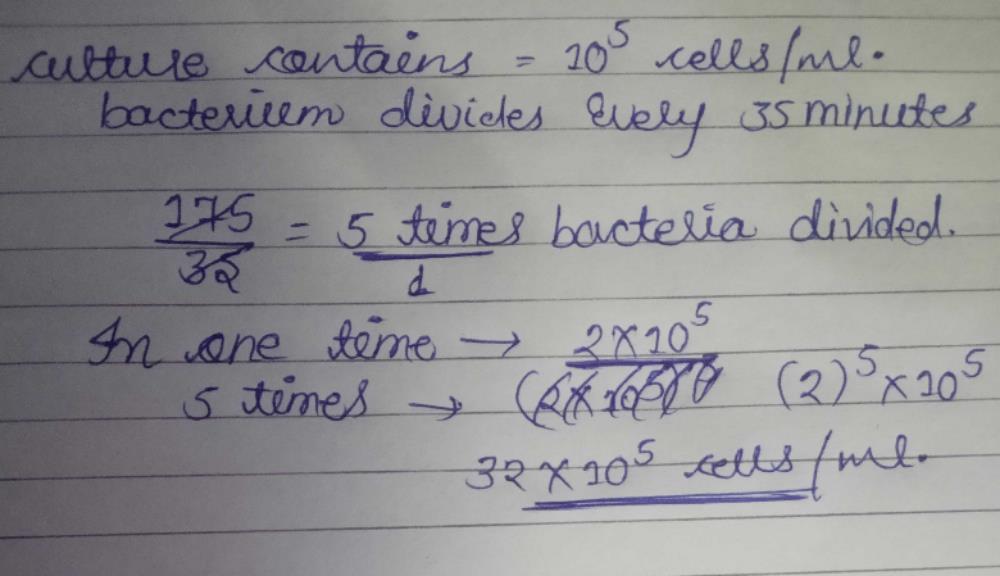 culture contains = 10⁵ cells/ml.
bacterium divides every 35 minutes
175/35 = 5 times/1 bacteria divided.
In one time → 2×10⁵
5 times → (2)⁵×10⁵
32×10⁵ cells/ml.